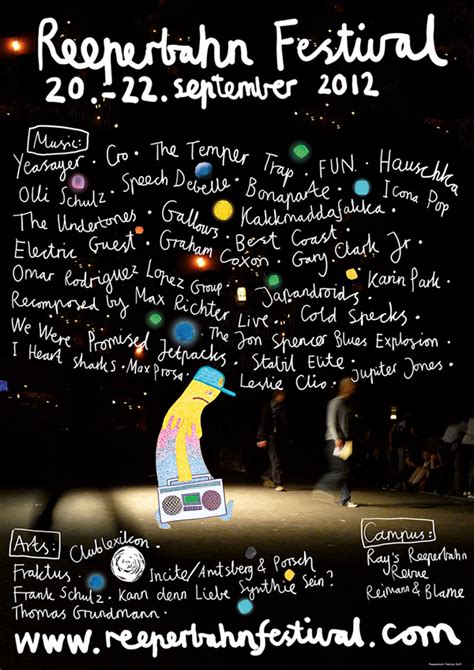 Reeperbahn Festival
20.-22. September 2012
Music:
Yeasayer · Cro · The Temper Trap · FUN. · Hauschka
Olli Schulz · Speech Debelle · Bonaparte · Icona Pop
The Undertones · Gallows · Kakkmaddafakka
Electric Guest · Graham Coxon · Best Coast · Gary Clark Jr.
Omar Rodriguez Lopez Group · Japandroids · Karin Park
Recomposed by Max Richter Live · Cold Specks
We Were Promised Jetpacks · The Jon Spencer Blues Explosion
I Heart Sharks · Max Prosa · Stabil Elite · Leslie Clio · Jupiter Jones
Arts: Clublexikon
Fraktus · Incite/Amtsberg & Porsch
Frank Schulz · Kann denn Liebe Synthie Sein?
Thomas Grundmann
Campus:
Ray's Reeperbahn
Revue
Reimann & Blame
www.reeperbahnfestival.com